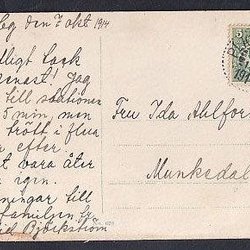 bg den 7 okt 1914
lligt Tack
enast! Jag
till stationen
5 min, men
trött i flera
r efter.
t vara åter
igen.
ningar till
familjen fr
Björkström
Fru Ida Ahlfor
Munkedal
5